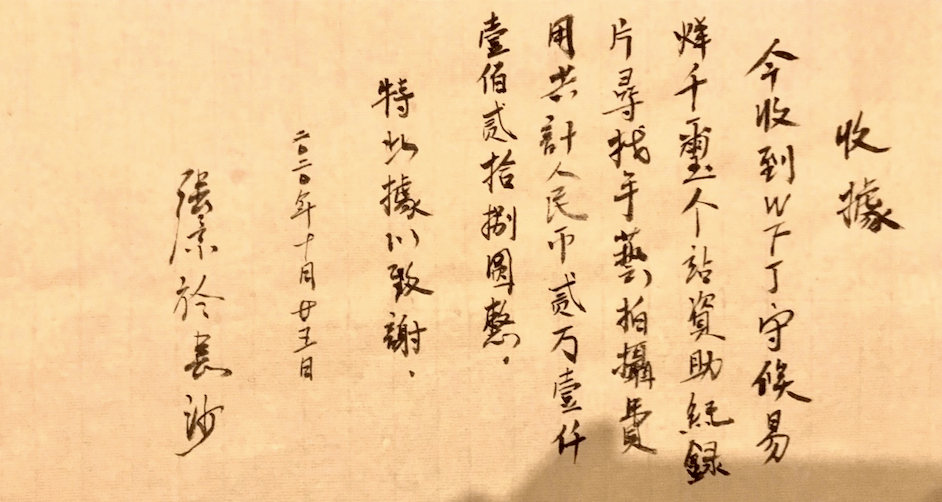 收據
今收到WTT守候易
烊千璽个站資助紀録
片尋找手藝拍攝費
用共計人民币贰万壹仟
壹佰贰拾捌圆整。
特此據以致謝.
二〇二〇年十月廿五日
張景於長沙